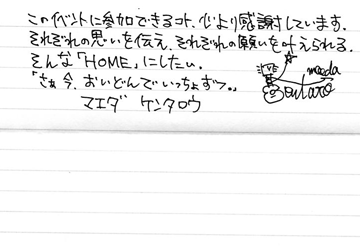 このイベントに参加できるコト、心より感謝しています。
それぞれの思いを伝え、それぞれの願いを叶えられる。
そんな「HOME」にしたい。
「さぁ 今、おいどんでいっちょずつ。」
マエダ ケンタロウ
maeda